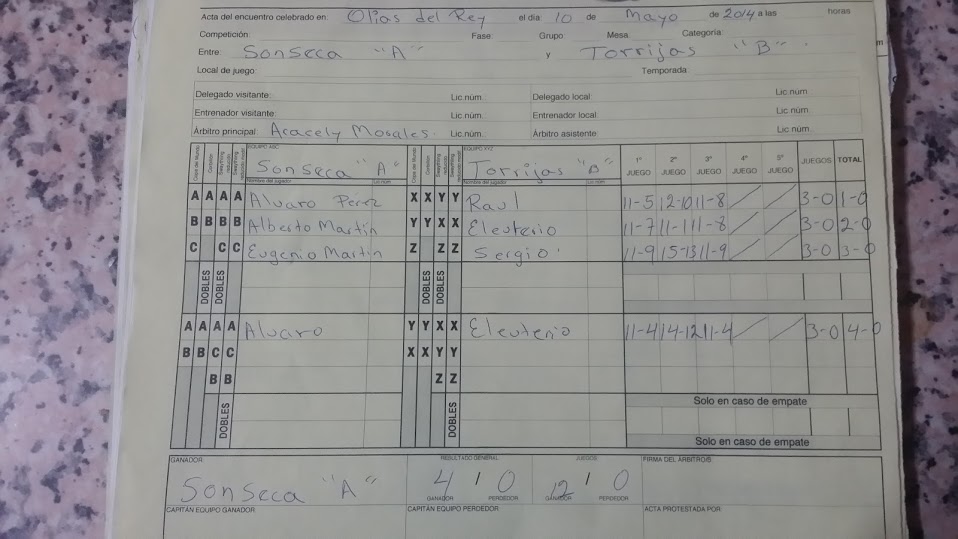 Acta del encuentro celebrado en: Olias del Rey el día: 10 de Mayo de 2014 a las horas
Competición: Fase: Grupo: Mesa: Categoría:
Entre: Sonseca "A" y Torrijas "B"
Local de juego: Temporada:
Delegado visitante: Lic núm. Delegado local: Lic núm.
Entrenador visitante: Lic núm. Entrenador local: Lic núm.
Árbitro principal: Aracely Morales. Lic núm. Árbitro asistente: Lic núm.
EQUIPO ABC EQUIPO XYZ
Sonseca "A" Torrijas "B" 1º JUEGO 2º JUEGO 3º JUEGO 4º JUEGO 5º JUEGO JUEGOS TOTAL
Nombre del jugador Lic núm. Nombre del jugador Lic núm.
A A A A Alvaro Pérez X X Y Y Raul 11-5 12-10 11-8 3-0 1-0
B B B B Alberto Martín Y Y X X Eleuterio 11-7 11-1 11-8 3-0 2-0
C C C Eugenio Martin Z Z Z Sergio 11-9 15-13 11-9 3-0 3-0
DOBLES DOBLES DOBLES DOBLES
A A A A Alvaro Y Y X X Eleuterio 11-4 14-12 11-4 3-0 4-0
B B C C X X Y Y
B B Z Z
Solo en caso de empate
DOBLES DOBLES
Solo en caso de empate
GANADOR RESULTADO GENERAL JUEGOS FIRMA DEL ÁRBITRO/S
Sonseca "A" 4 / 0 12 / 0
GANADOR PERDEDOR GANADOR PERDEDOR
CAPITÁN EQUIPO GANADOR CAPITÁN EQUIPO PERDEDOR ACTA PROTESTADA POR